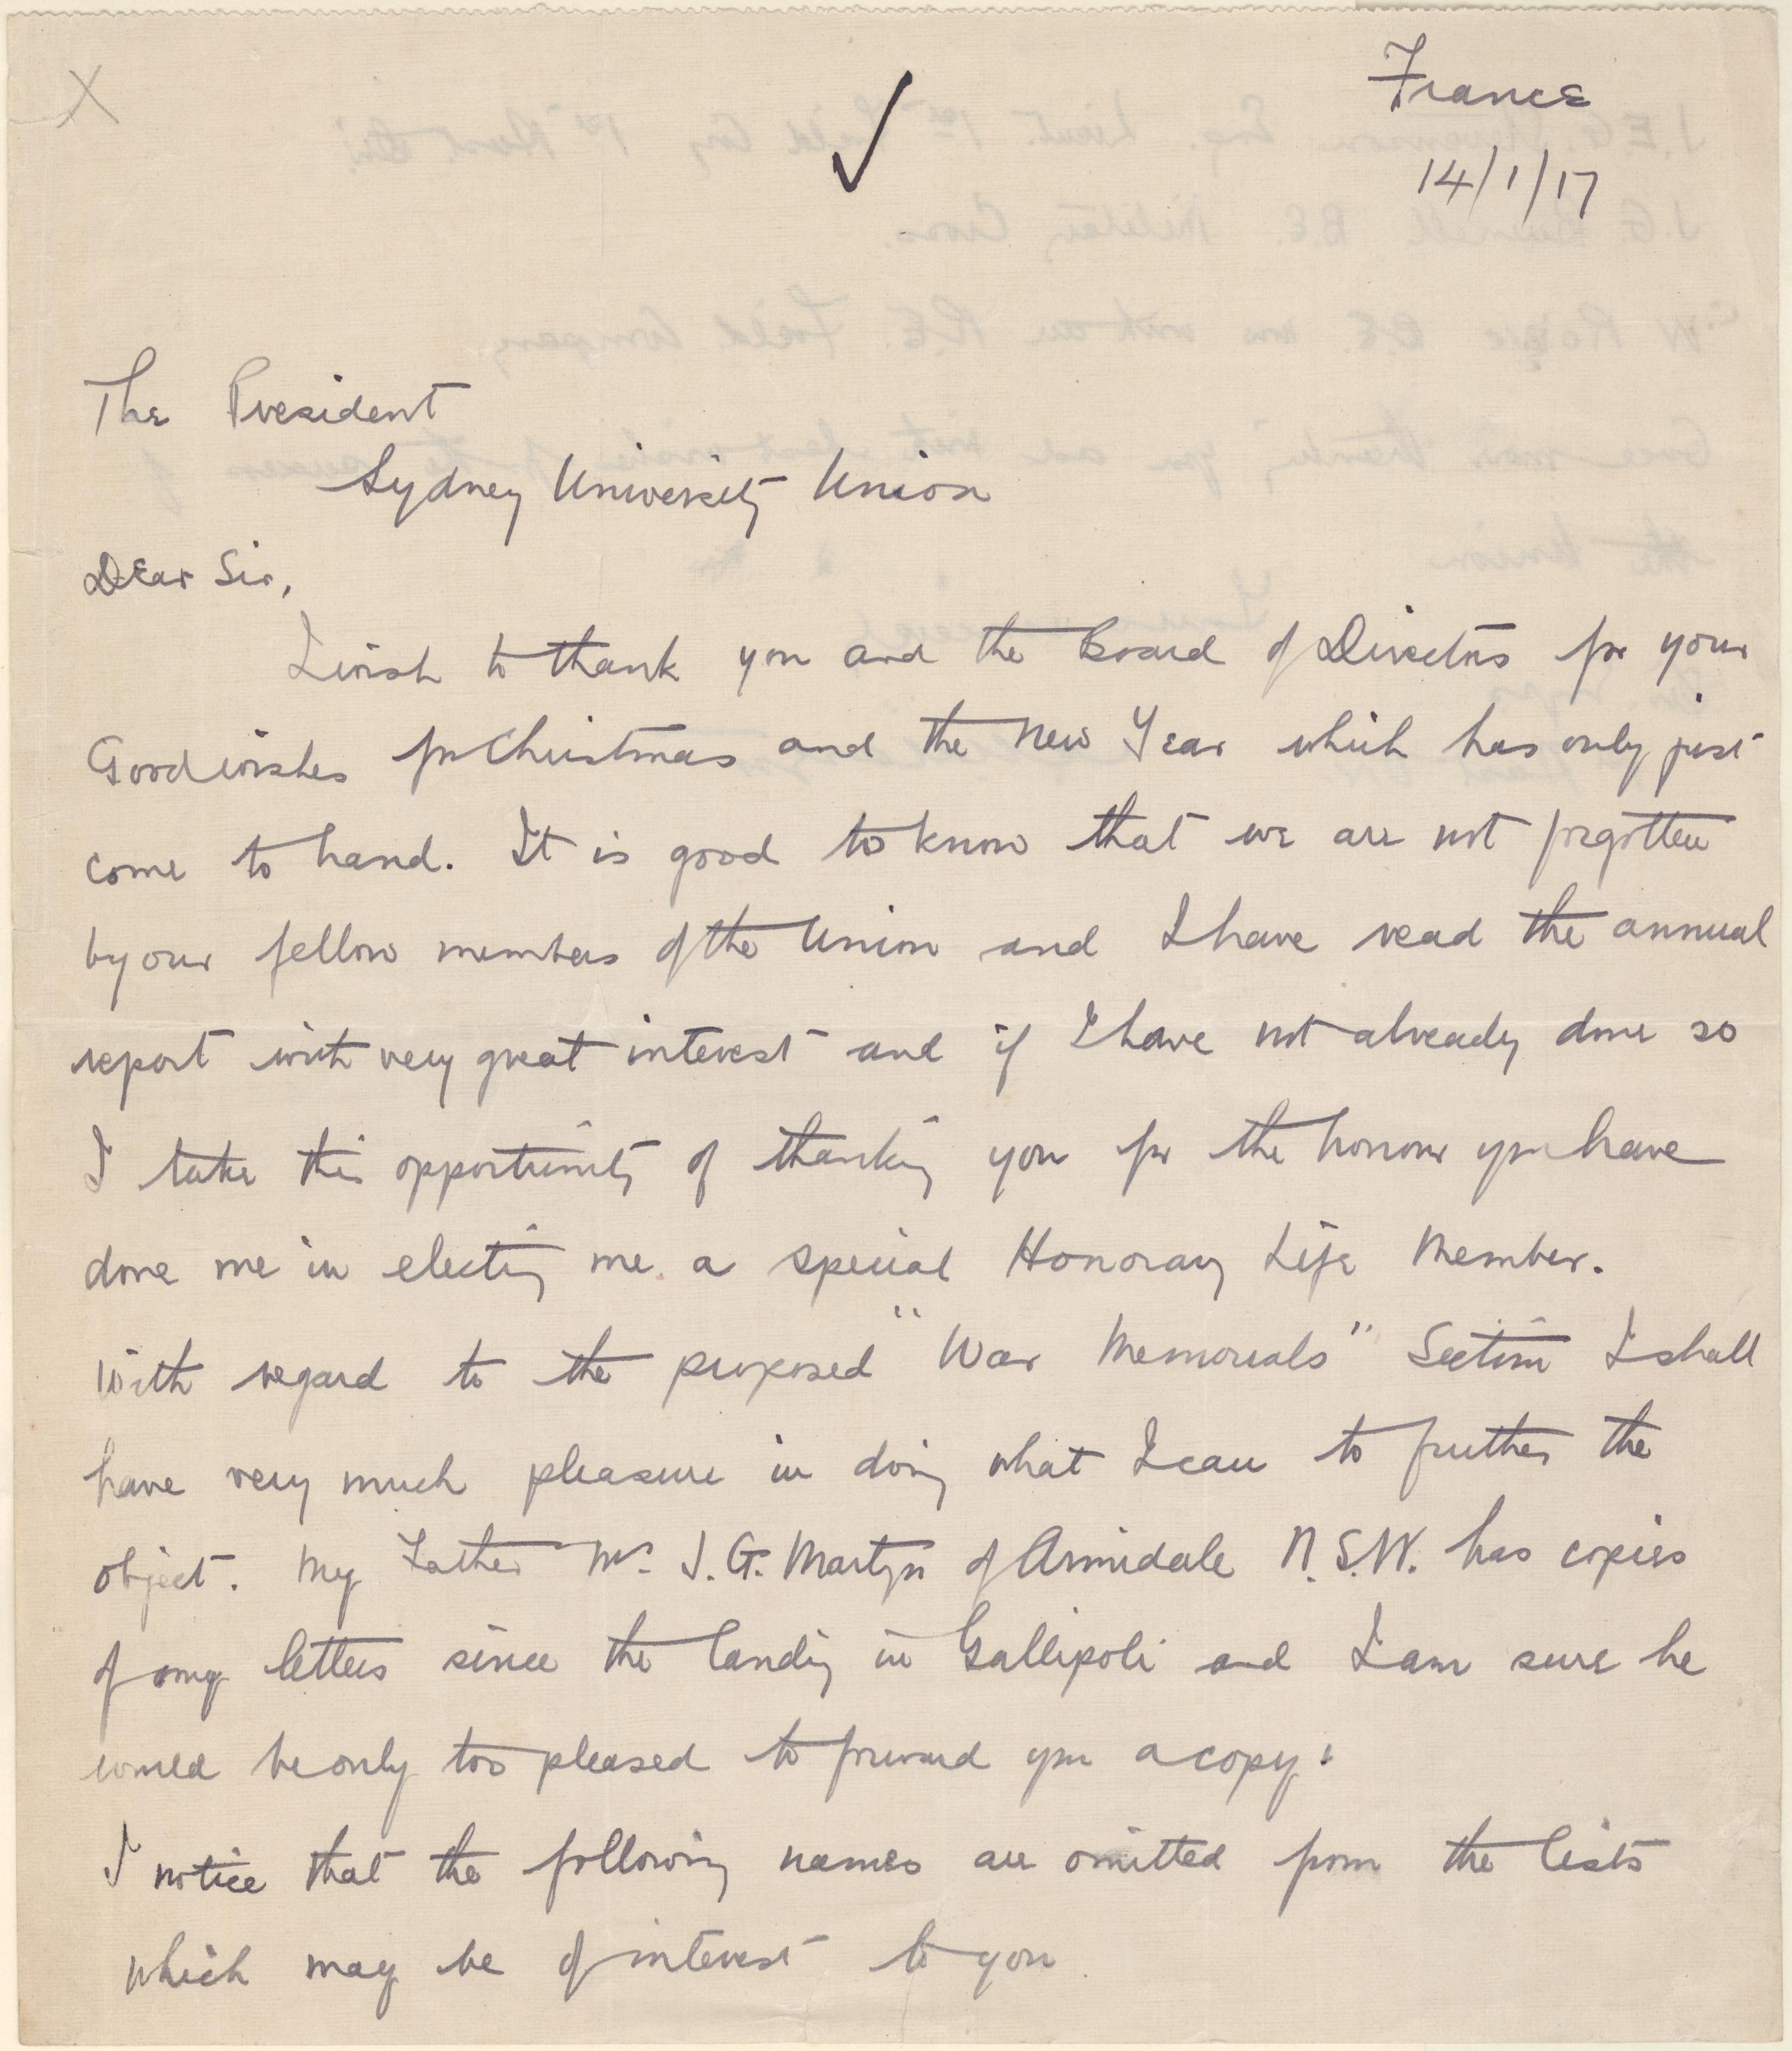 France
14/1/17
The President
Sydney University Union
Dear Sir,
I wish to thank you and the Board of Directors for your
Good wishes for Christmas and the New Year which has only just
come to hand. It is good to know that we are not forgotten
by our fellow members of the Union and I have read the annual
report with very great interest and if I have not already done so
I take this opportunity of thanking you for the honour you have
done me in electing me a special Honorary Life Member.
With regard to the proposed "War Memorials" Section I shall
have very much pleasure in doing what I can to further the
object. My Father Mr. J. G. Martyn of Armidale N.S.W. has copies
of my letters since the landing in Gallipoli and I am sure he
would be only too pleased to forward you a copy.
I notice that the following names are omitted from the lists
which may be of interest to you.